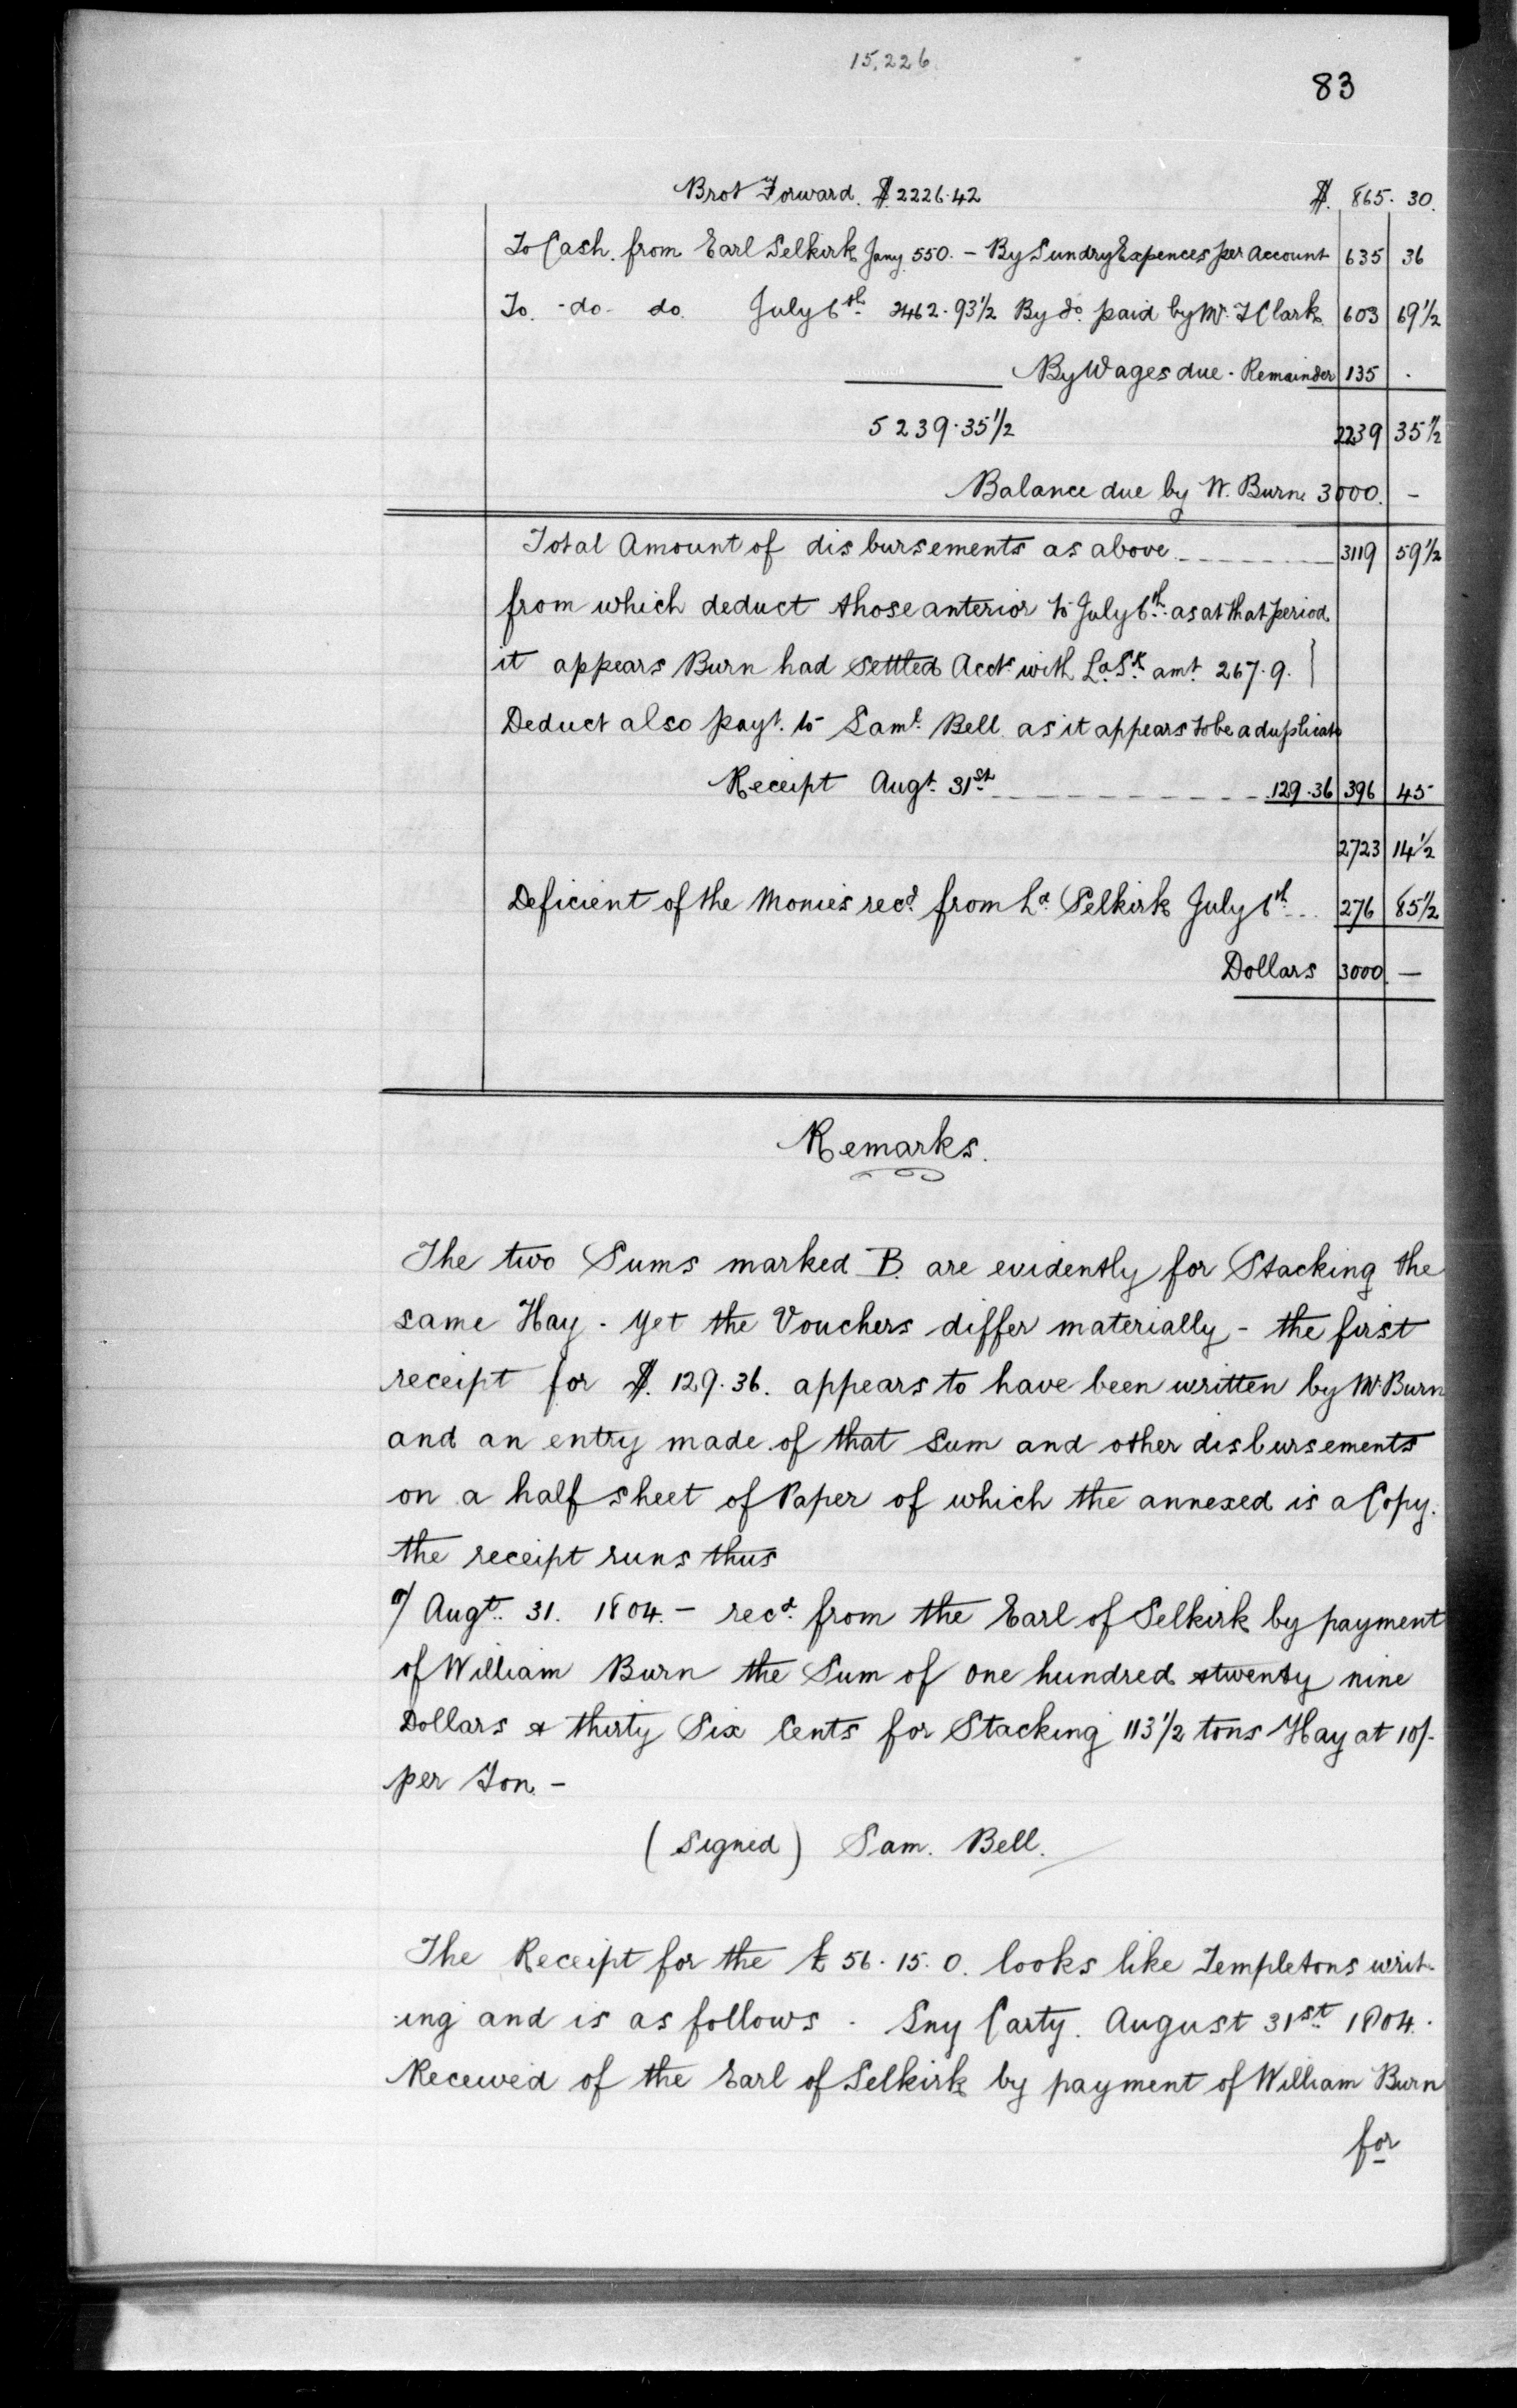 15,226
83
Brot Forward. $2226.42 $. 865. 30.
To Cash. from Earl Selkirk Jany. 550. – By Sundry Expences per Account 635 36
To. -do- do. July 6th 2462.93½ By do. paid by Mr. T Clark 603 69½
By Wages due. Remainder 135 .
5239.35½ 2239 35½
Balance due by W. Burn 3000. –
Total Amount of disbursements as above 3119 59½
from which deduct those anterior to July 6th. as at that period
it appears Burn had settled Accts. with Ld. Sk. amt. 267.9. }
Deduct also payt. to Saml. Bell as it appears to be a duplicate
Receipt Augt. 31st 129.36 396 45
2723 14½
Deficient of the Monies recd. from Ld. Selkirk July 6th 276 85½
Dollars 3000 —
Remarks.
The two Sums marked B. are evidently for Stacking the
same Hay. yet the Vouchers differ materially – the first
receipt for $. 129.36. appears to have been written by Mr Burn
and an entry made of that Sum and other disbursements
on a half sheet of Paper of which the annexed is a Copy.
the receipt runs thus
"/ Augt. 31. 1804. – recd. from the Earl of Selkirk by payment
of William Burn the Sum of one hundred & twenty nine
Dollars & thirty Six Cents for Stacking 113½ tons Hay at 10/-
per Ton. –
(Signed) Sam. Bell.
The Receipt for the £ 56. 15. 0. looks like Templetons writ-
-ing and is as follows. Sny Carty. August 31st. 1804.
Received of the Earl of Selkirk by payment of William Burn
for